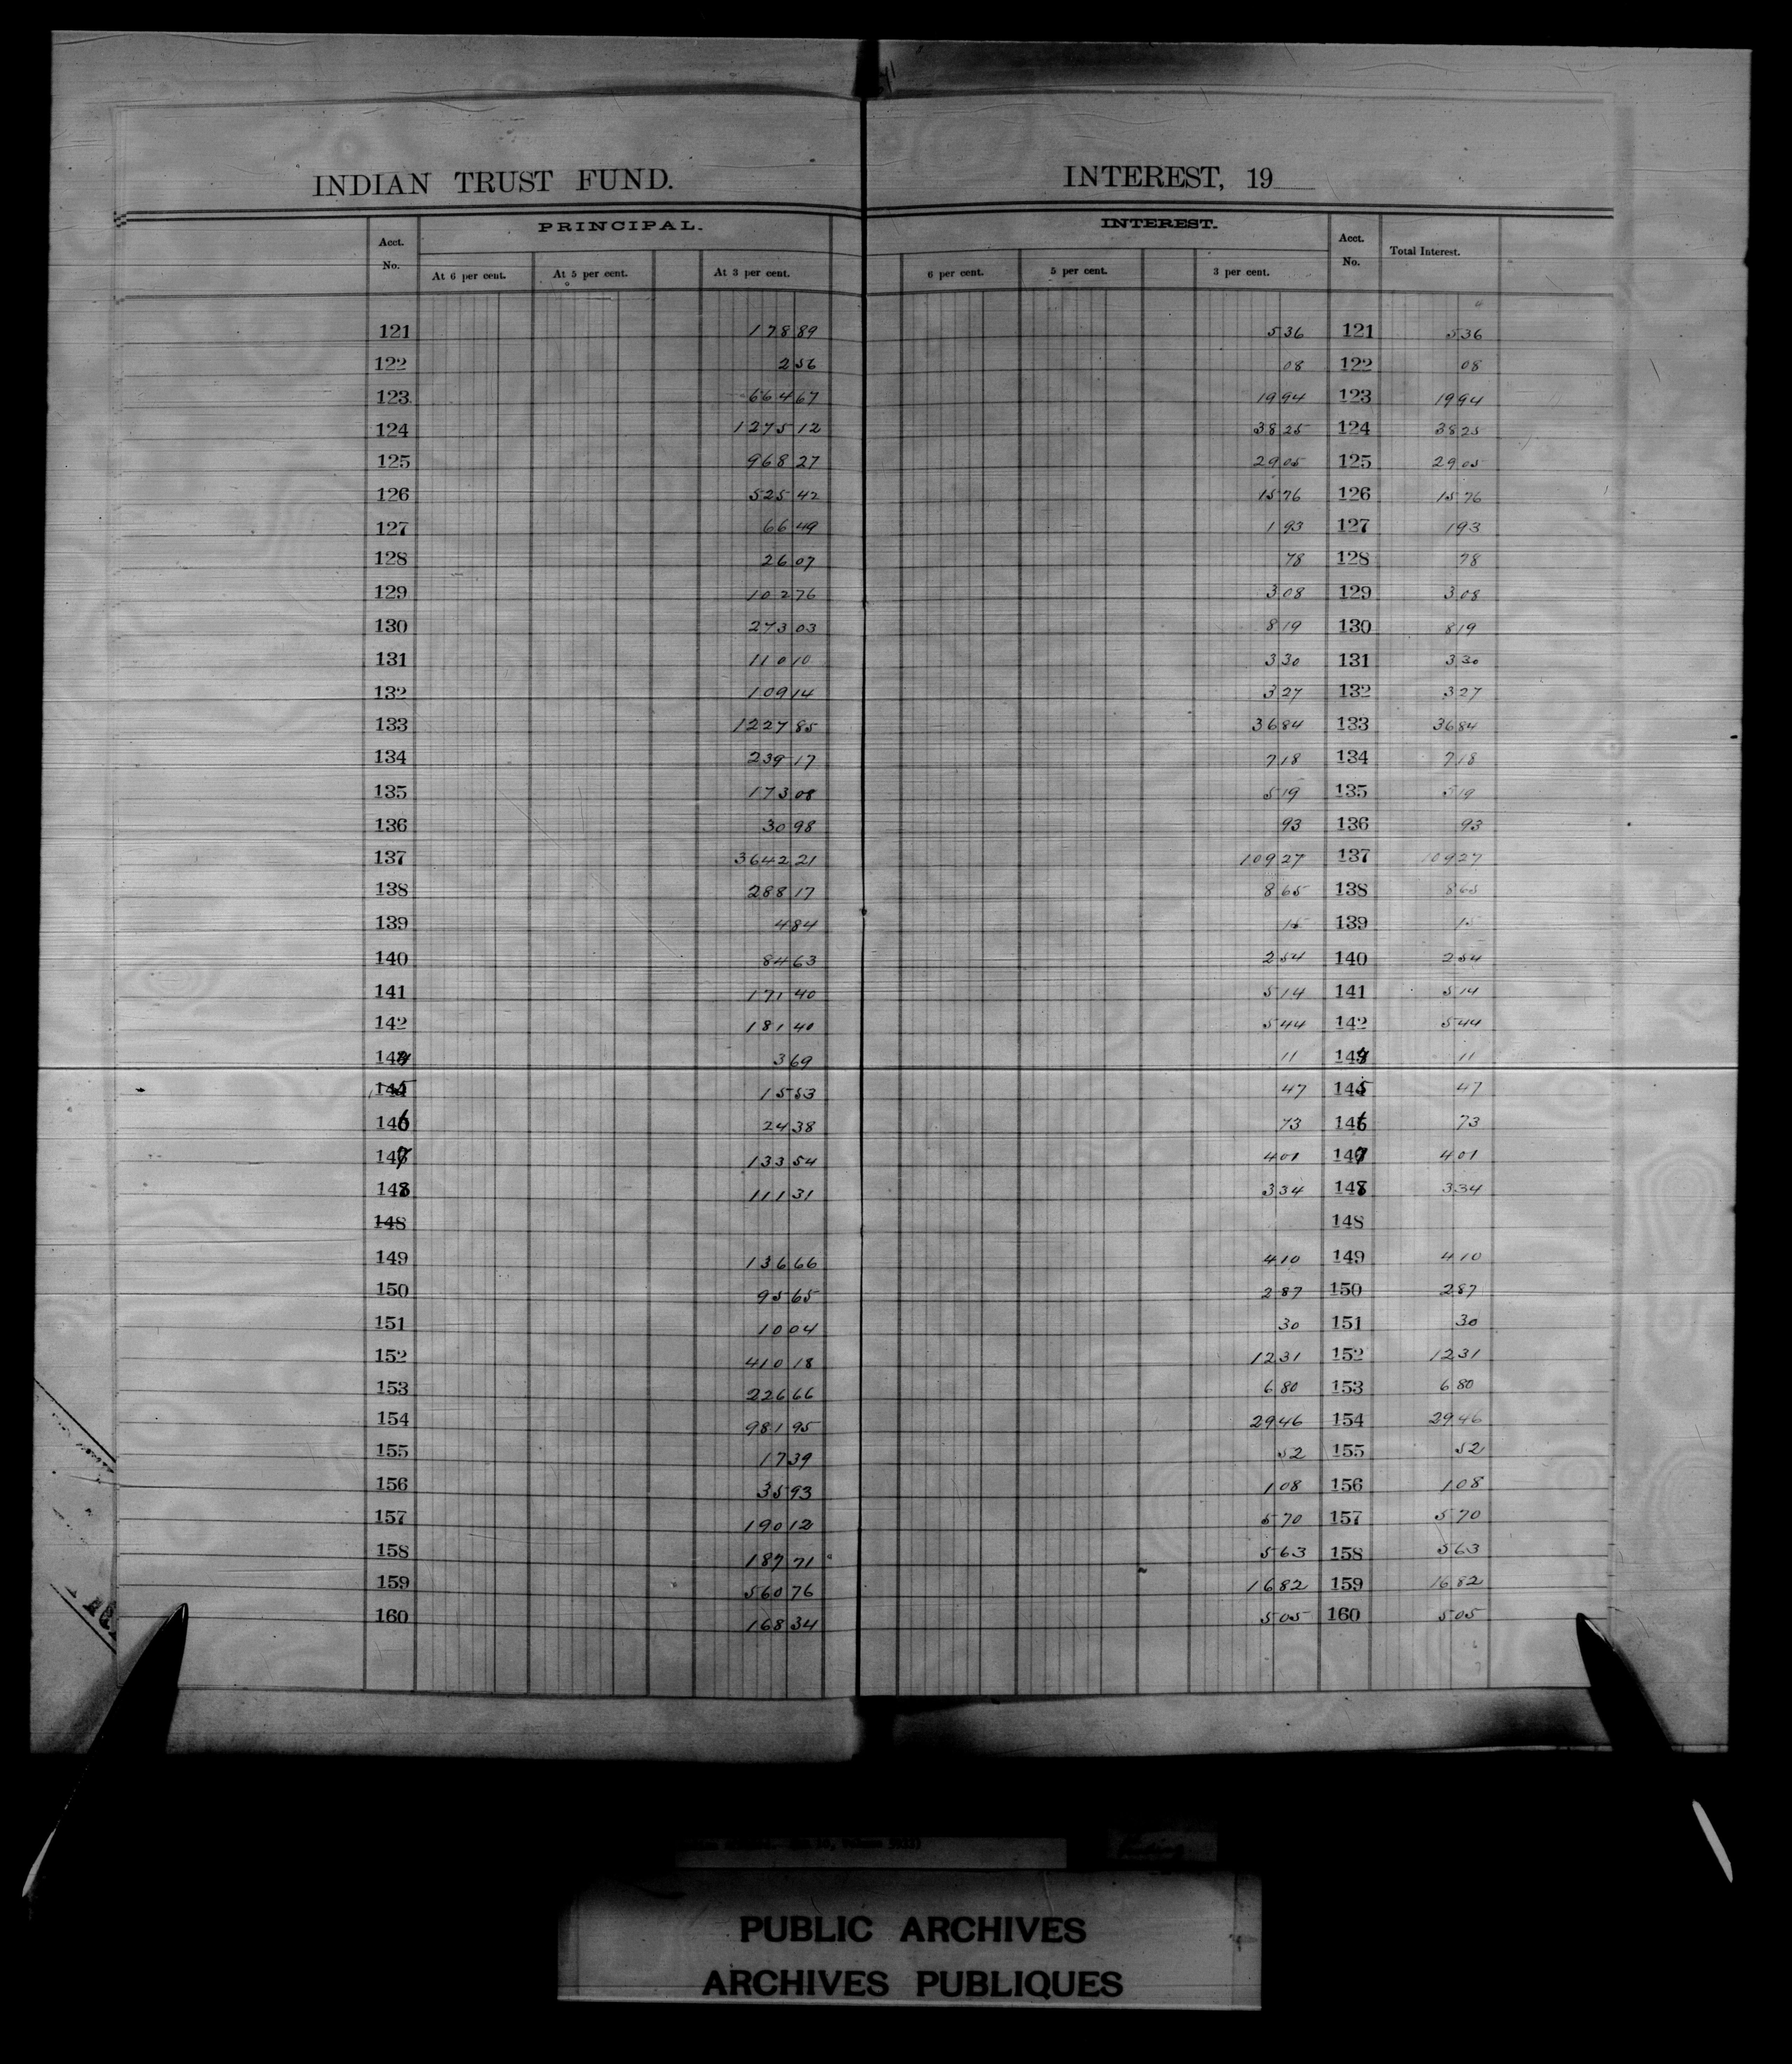 INDIAN TRUST FUND. INTEREST, 19
PRINCIPAL. INTEREST.
Acct. No. At 6 per cent. At 5 per cent. At 3 per cent. 6 per cent. 5 per cent. 3 per cent. Acct. No. Total Interest.
121 178 89 5 36 121 5 36
122 2 56 08 122 08
123 664 67 19 94 123 19 94
124 1275 12 38 25 124 38 25
125 968 27 29 05 125 29 05
126 525 42 15 76 126 15 76
127 66 49 1 93 127 1 93
128 26 07 78 128 78
129 102 76 3 08 129 3 08
130 273 03 8 19 130 8 19
131 110 10 3 30 131 3 30
132 109 14 3 27 132 3 27
133 1227 85 36 84 133 36 84
134 239 17 7 18 134 7 18
135 173 08 5 19 135 5 19
136 30 98 93 136 93
137 3642 21 109 27 137 109 27
138 288 17 8 65 138 8 65
139 4 84 15 139 15
140 84 63 2 54 140 2 54
141 171 40 5 14 141 5 14
142 181 40 5 44 142 5 44
144 3 69 11 144 11
145 15 53 47 145 47
146 24 38 73 146 73
147 133 54 4 01 147 4 01
148 111 31 3 34 148 3 34
148 148
149 136 66 4 10 149 4 10
150 95 65 2 87 150 2 87
151 10 04 30 151 30
152 410 18 12 31 152 12 31
153 226 66 6 80 153 6 80
154 981 95 29 46 154 29 46
155 17 39 52 155 52
156 35 93 1 08 156 1 08
157 190 12 5 70 157 5 70
158 187 71 5 63 158 5 63
159 560 76 16 82 159 16 82
160 168 34 5 05 160 5 05
PUBLIC ARCHIVES
ARCHIVES PUBLIQUES